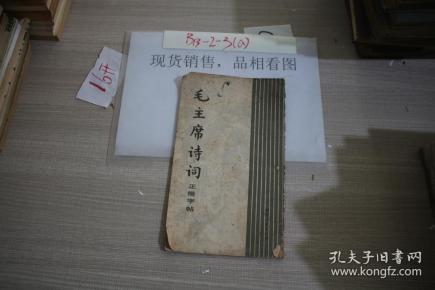 B13-2-3(0)
现货销售，品相看图
16开
毛主席诗词
正楷字帖
孔夫子旧书网
www.kongfz.com